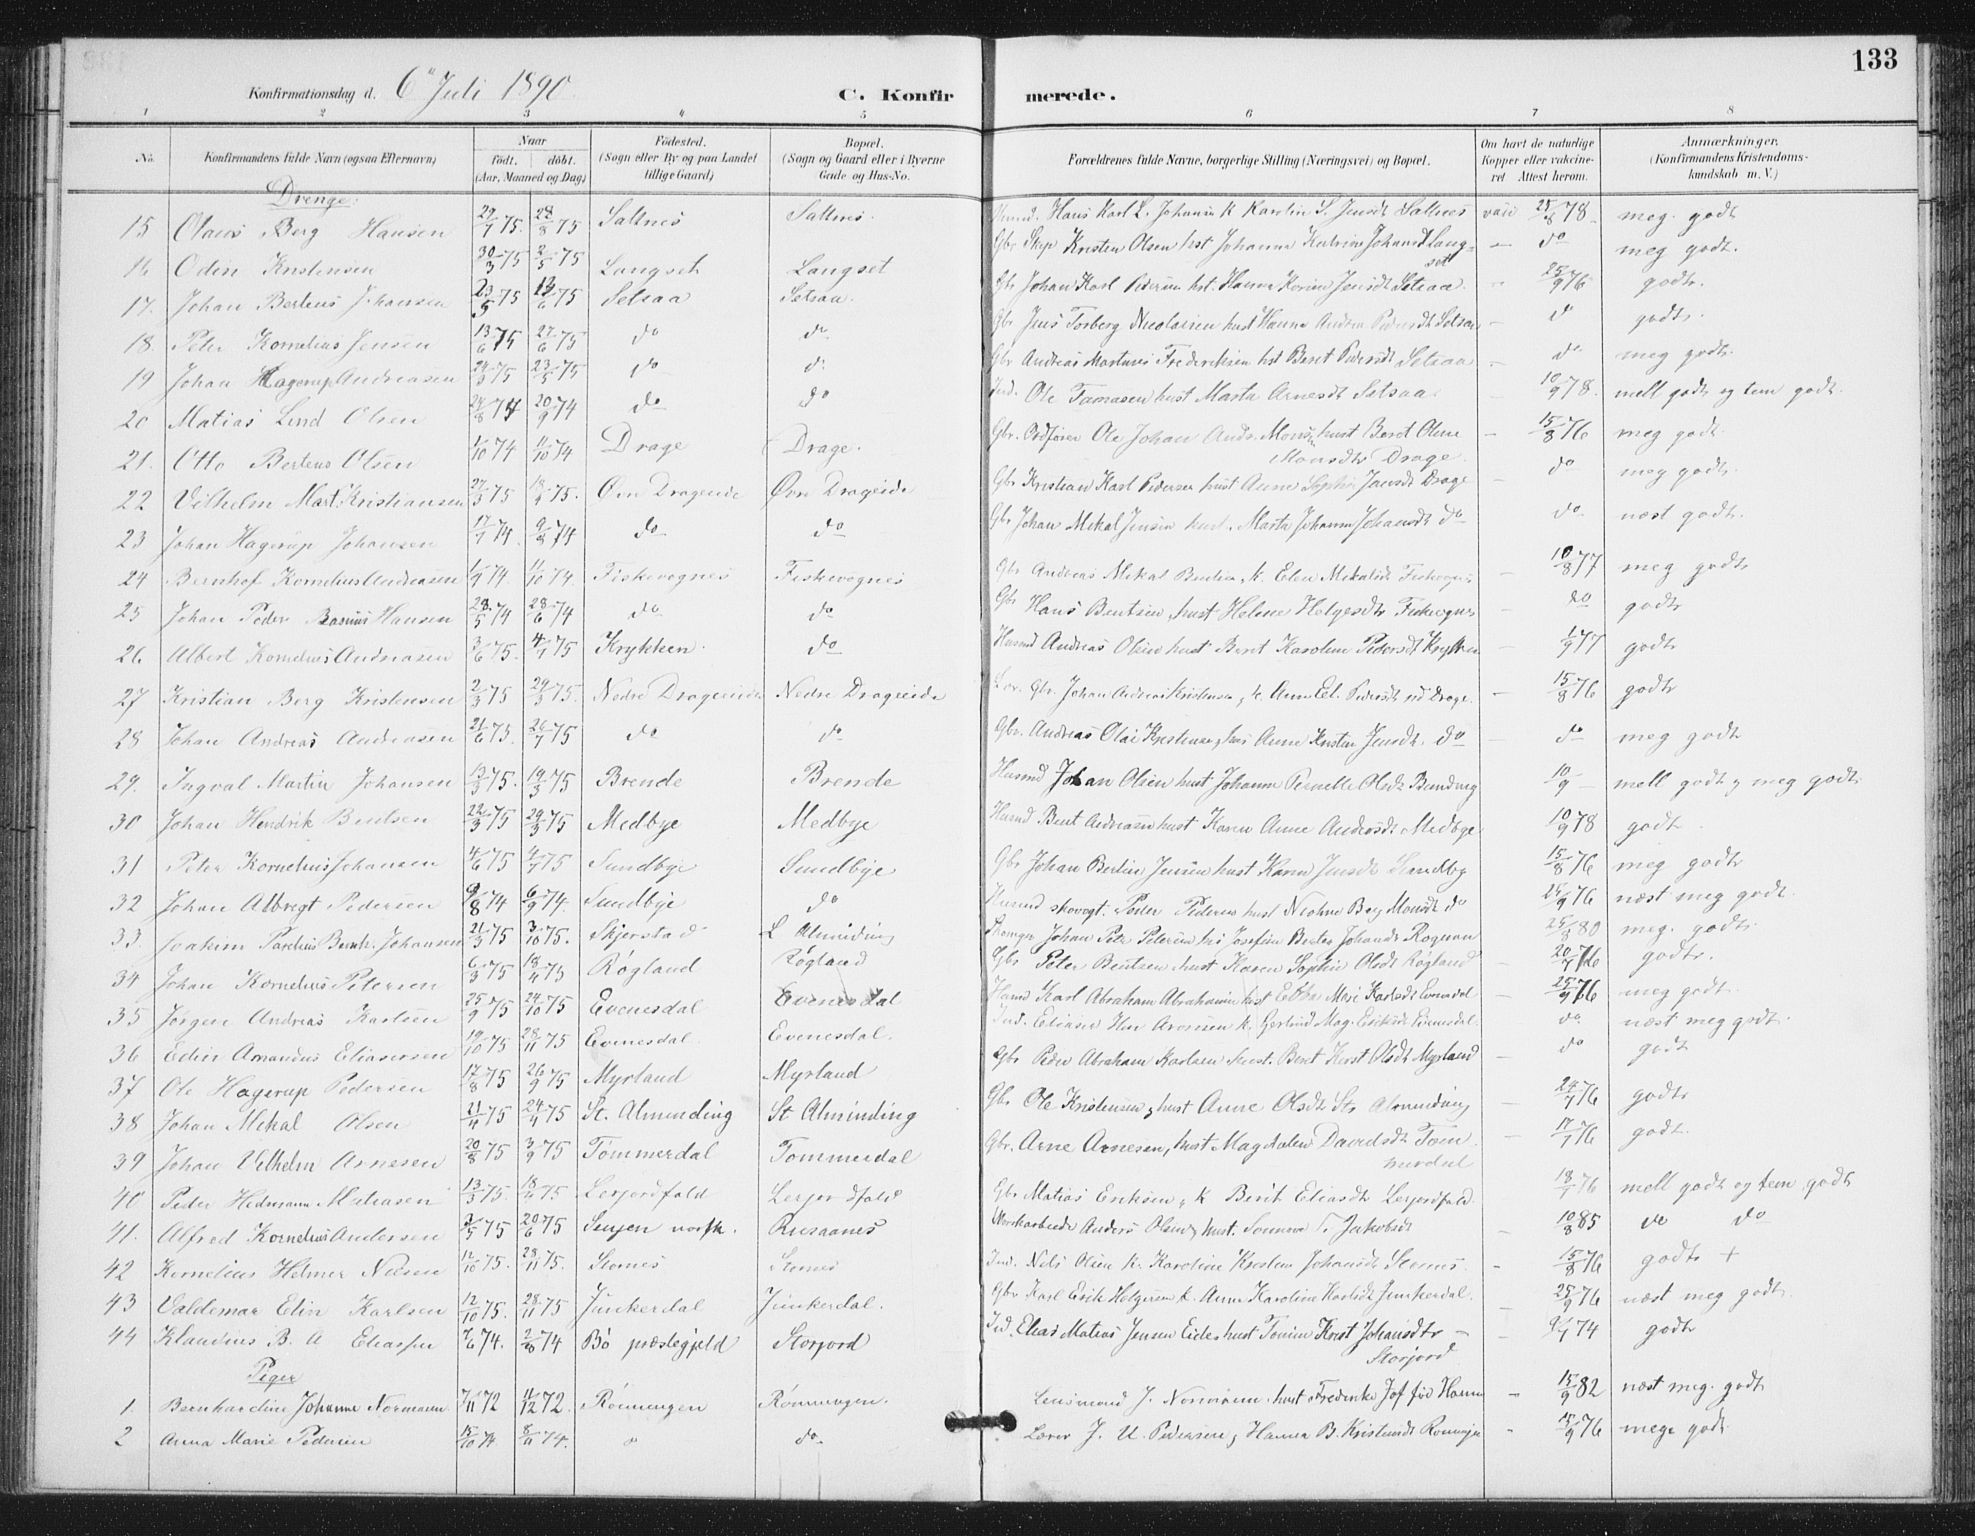 133
Konfirmationsdag d. 6 Juli 1890.
C. Konfirmerede.
1 2 3 4 5 6 7 8
No. Konfirmandens fulde Navn (ogsaa Efternavn) Naar født. døbt. (Aar, Maaned og Dag) Fødested. (Sogn eller By og paa Landet tillige Gaard) Bopæl. (Sogn og Gaard eller i Byerne Gade og Hus-No. Forældrenes fulde Navne, borgerlige Stilling (Næringsvei) og Bopæl. Om havt de naturlige Kopper eller vakcineret Attest herom. Anmærkninger. (Konfirmandens Kristendomskundskab m. V.)
Drenge:
15 Olaus Berg Hansen 29/7 75. 28/8 75 Saltnes Saltnes. Hans Karl L. Johansen K. Karolin S. Jensdt Saltnes vac 25/8 78 meg. godt
16 Odin Kristensen 30/3 75 2/5 75 Langset Langset Gbr Skyp Kristen Olsen hst Johanna Katrine Johansdt Langset — do meg godt.
17. Johan Berteus Johansen 23/5 75 13/6 75 Setsaa Setsaa. Gbr Johan Karl Pedersen hst. Hanna Karine Jensdt Setsaa 25/9 76 godt.
18 Peter Kornelius Jensen 13/6 75 27/6 75 do do Gbr Jens Torberg Nicolaisen hust Hanna Andrea Pedersdt Setsaa — do godt.
19 Johan Hagerup Andreasen 24/3 75 23/5 75 do do Gbr Andreas Martinus Frederiksen hst Beret Pedersdt Setsaa — do meg godt.
20 Matias Lind Olsen 24/8 74 20/9 74 do do Ind. Ole Tomasen hust Marta Arnesdt Setsaa. — 10/9 78. mell godt og tem godt.
21. Otto Berteus Olsen 1/10 74 11/10 74 Drage Drage. Gbr. Ordfører Ole Johan Andr. Mons hust Beret Oline Monsdtr Drage — 15/8 76 meg godt.
22 Vilhelm Mart. Kristiansen 27/3 75 18/4 75. Øvre Drageide Øvre Drageide Gbr Kristian Karl Pedersen hust Anne Sophie Jansdt Drage do meg godt.
23 Johan Hagerup Johansen 17/7 74. 9/8 74 do do Gbr Johan Mikal Jensen hust. Marta Johanna Johansdt do do næst godt.
24 Bernhof Kornelius Andreasen 1/9 74. 11/10 74. Fiskevognes Fiskevognes Gbr Andreas Mikal Bentsen, k. Elen Mikalsdt Fiskevognes — 10/8 77 meg godt
25 Johan Peder Rasmus Hansen 28/5 74 28/6 74 do do Gbr Hans Bentsen, hust Helene Helgesdtr Fiskevognes — do godt
26 Albert Kornelius Andreasen 3/6 75. 4/7 75 Krykken do Husmd Andreas Olsen hust Beret Karoline Pedersdt Krykken — 1/9 77 godt
27 Kristian Berg Kristensen 2/3 75 29/3 75. Nedre Drageide Nedre Drageide Gbr. Johan Andreas Kristensen, k. Anne El. Pedersdt nd Drage. — 15/8 76 godt
28 Johan Andreas Andreasen 21/6 75. 26/7 75 do do Gbr. Andreas Olai Kristensen, hus Anne Kristen Jensdt. do — do meg godt
29. Ingval Martin Johansen 13/3 75. 19/3 75 Brende Brende Husmd Johan Olsen hust Johanna Pernelle Olsdt — 10/9 — mell godt og meg godt
30 Johan Hendrik Bentsen 22/3 75 29/3 75 Medbye Medbye Husmd Bent Andreasen hust Karen Anne Andersdt Medbye 10/9 78 godt
31 Peter Kornelius Johansen 4/6 75 4/7 75 Sundbye Sundbye Gbr Johan Bertin Jensen hust Karen Jensdt Sundby 15/8 76 meg godt
32 Johan Albregt Pedersen 9/8 74 6/9 74. Sundbye do Husmd skovogt. Peder Pedersen hust Nicoline Berg Monsdt do 25/9 76 næst meg godt.
33. Joakim Paselius Bernh. Johansen 21/3 75 3/10 75. Skjerstad L Alminding Johan Petr Petersen hs Josefine Berteo Johansdt Rognan 25/8 80 meg. godt.
34 Johan Kornelius Petersen 6/3 75 18/4 75 Røgland Røgland Gbr Peter Bentsen hust Karen Sophie Olsdt Røgland 20/7 76 godt.
35 Jørgen Andreas Karlsen 25/9 75 24/10 75 Evenesdal Evenesdal Husmd Karl Abraham Abrahamsen hust Ebba Mari Karlsdt Evenesdal 25/9 76 meg godt.
36 Edin Amandus Eliasersen 19/10 75 28/11 75 Evenesdal. Evenesdal. Ind. Eliaser Hen Aronsen k. Gertrud Mag. Eriksdt Evenesdal. do næst meg godt.
37 Ole Hagerup Pedersen 17/8 75 26/9 75 Myrland Myrland Gbr Peder Abraham Karlsen hust. Beret Kerst Olsdt Myrland — do godt
38 Johan Mikal Olsen 21/4 75 24/4 75 St. Alminding St Alminding Gbr Ole Kristensen, hust Anne Olsdt St. Alminding — 24/7 76 godt
39 Johan Vilhelm Arnesen 20/8 75 3/9 75 Tømmerdal Tømmerdal Gbr. Arne Arnesen, hust Magdalen Davidsdt Tømmerdal — 17/7 76 godt.
40 Peder Hedmann Matiasen 13/3 75. 18/4 75 Lerjordfald Lerjordfald Gbr Matias Eriksen, k Berit Eliasdt Lerjordfald. 18/7 76 mell godt og tem godt
41. Alfred Kornelius Andersen 3/5 75 20/6 75 Senjen norsk. Rusaanes Anders Olsen hust. T. Jakobsdt 10/8 85 do do
42 Kornelius Helmer Nilsen 12/10 75. 28/11 75. Stornes Stornes Ind. Nils Olsen k. Karoline Kristen Johansdt Stornes. - 15/8 76 godt +
43 Valdemar Elin Karlsen 12/10 75. 28/11 75 Junkerdal Junkerdal. Gbr Karl Erik Holgersen k. Anne Karoline Karlsdt Junkerdal. 25/9 76 næst meg godt.
44 Klaudius B. A Eliassen 7/6 74. 2/8 74 Bø præstegjeld Storjord Ind. Elias Matias Jensen Eide hust Tonine Krist Johansdtr Storjord — 9/7 74 godt
Piger
1. Bernhardine Johanne Normann. 7/11 72 11/12 72. Rønningen Rønningen. Lensmand J. Normann hust Frederike Jof før Hanne - 15/9 82 næst meg. godt
2 Anna Marie Pedersen 15/10 74 8/11 74. " do Lærer J. U. Pedersen, Hanna B. Kristensdt Rønningen 15/9 76 mege godt